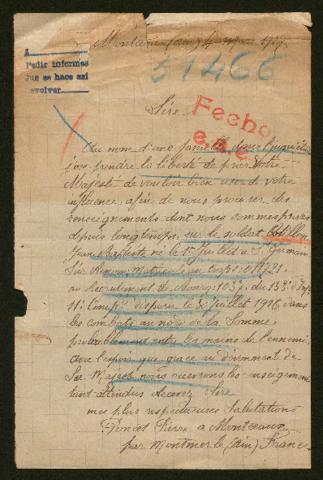 A
Pedir informes
que se hace asi
devolver
51466
Fecho
Sire,
Au nom d'une famille dans l'inquiétude
j'ose prendre la liberté de prier Votre
Majesté de vouloir bien user de votre
influence afin de nous procurer des
renseignements dont nous sommes privés
depuis longtemps sur le soldat
Jean Baptiste né le 1er Juillet à St Germain
au Recrutement de Bourg 103 du 133e d'inf
11e Comp disparu le 30 juillet 1916 dans
les combats au nord de la Somme
probablement entre les mains de l'ennemi
avec l'espoir que grace au dévouement de
Sa Majesté nous recevrons les renseignements
tant attendus recevez Sire
mes plus respectueuses salutations
Poncet Pierre a Montceaux
par Montmerle (Ain) France